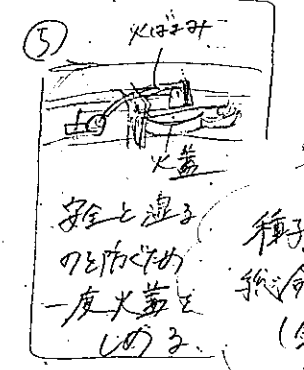 ⑤
火ばさみ
火蓋
安全と湿る
のを防ぐため
一度火蓋を
しめる。
種子